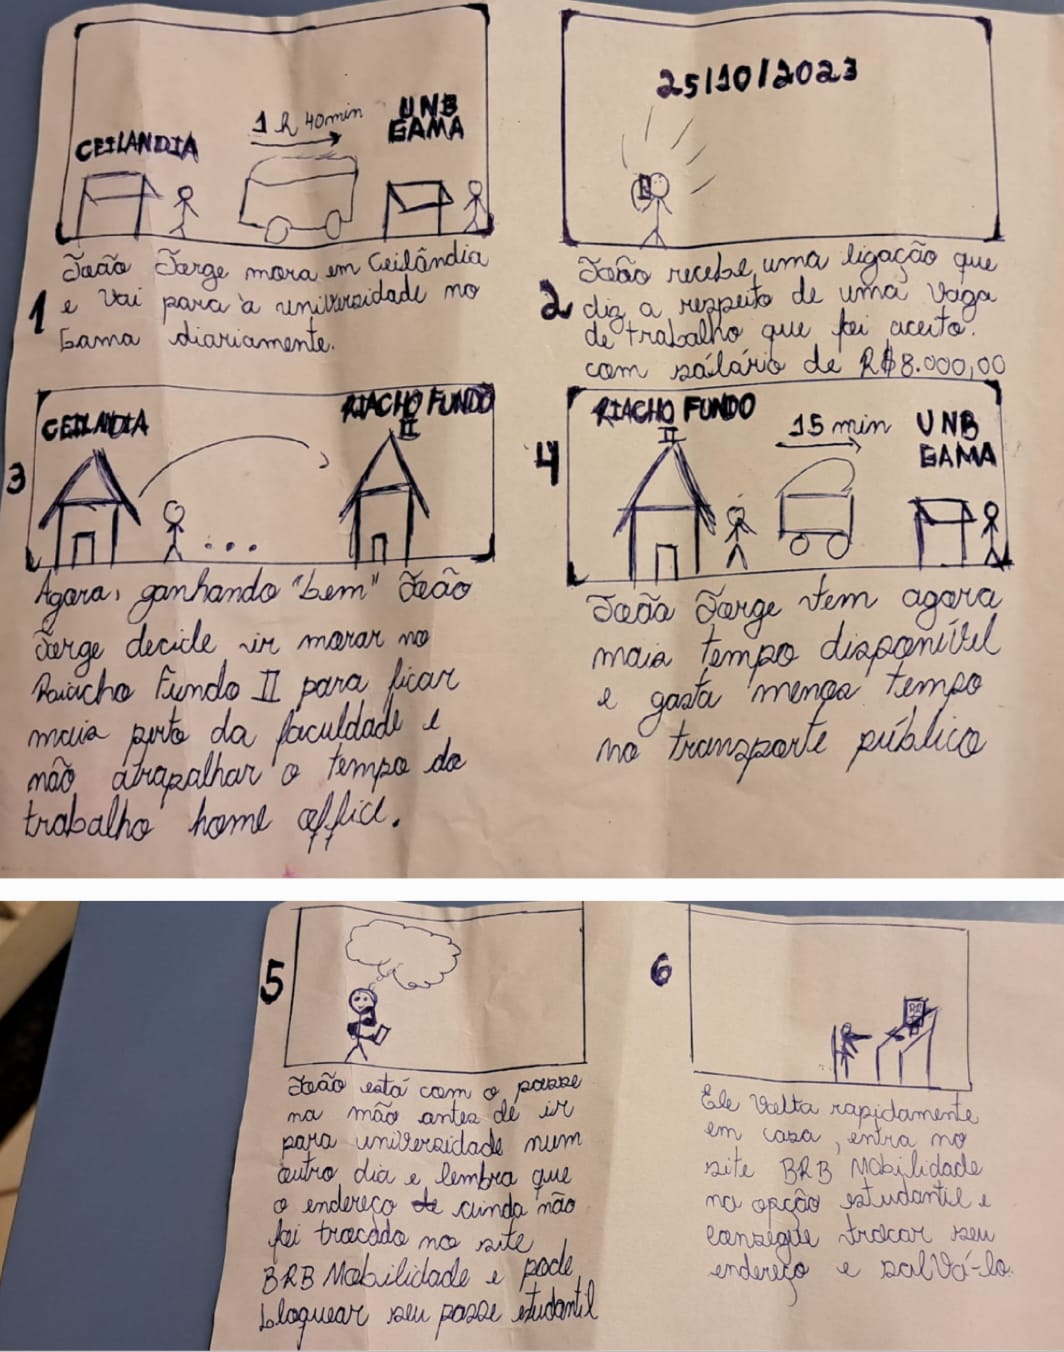 CEILANDIA
1 h 40min
UNB
GAMA
1
João Jorge mora em Ceilândia
e vai para a universidade no
Gama diariamente.
25/10/2023
2
João recebe uma ligação que
diz a respeito de uma vaga
de trabalho que foi aceito.
com sálário de R$8.000,00
3
CEILANDIA
RIACHO FUNDO
II
Agora, ganhando "bem" João
Jorge decide ir morar no
Raiacho Fundo II para ficar
mais perto da faculdade e
não atrapalhar o tempo do
trabalho home office.
4
RIACHO FUNDO
II
15 min
UNB
GAMA
João Jorge tem agora
mais tempo disponível
e gasta menos tempo
no transporte público
5
João está com o passe
na mão antes de ir
para universidade num
outro dia e lembra que
o endereço de ainda não
foi trocado no site
BRB Mobilidade e pode
bloquear seu passe estudantil
6
Ele volta rapidamente
em casa, entra no
site BRB Mobilidade
na opção estudantil e
consegue trocar seu
endereço e salvá-lo.